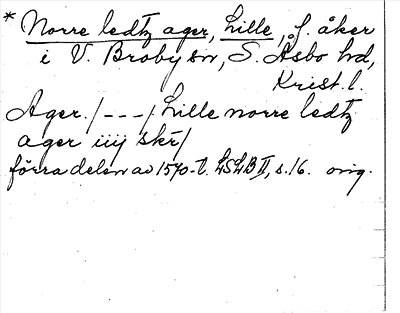 * Norre ledtz ager, Lille, f. åker
i V. Broby sn, S. Åsbo hd,
Krist. l.
Ager. /---/ Lille norre ledtz
ager iiij skr/
förra delen av 1570-t. LSLB II, s. 16. orig.